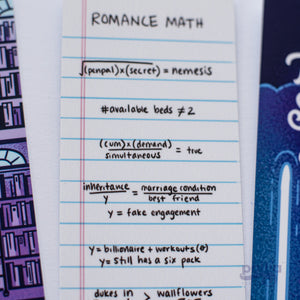 ROMANCE MATH
√(penpal)x(secret) = nemesis
#available beds ≠ 2
(cum)x(demand)
simultaneous = true
inheritance / y = marriage condition / best friend
y = fake engagement
y = billionaire + workouts(0)
y = still has a six pack
dukes in > wallflowers